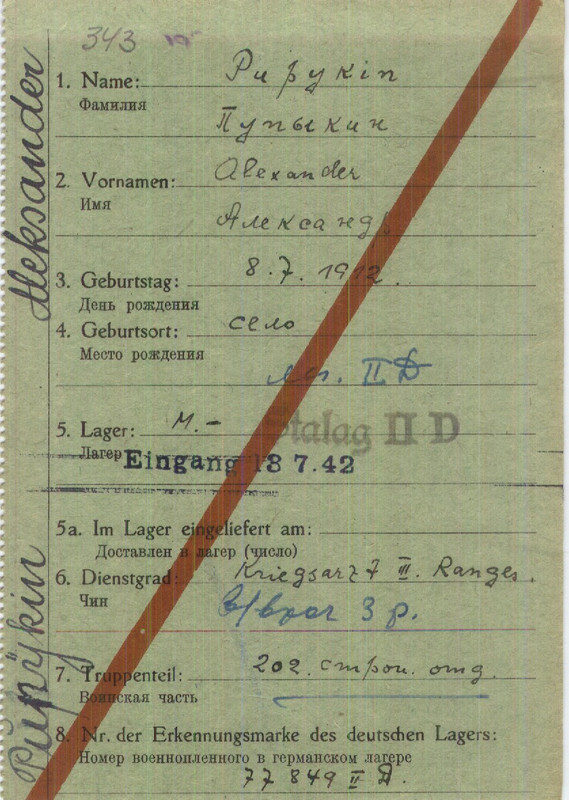 343
Aleksander
Pupÿkin
1. Name: Pupykin
Фамилия
Пупыкин
2. Vornamen: Alexander
Имя
Александр
3. Geburtstag: 8.7.1912.
День рождения
4. Geburtsort: село
Место рождения
II D
5. Lager: M.- Stalag II D
Лагер Eingang 18 7.42
5a. Im Lager eingeliefert am:
Доставлен в лагер (число)
6. Dienstgrad: Kriegsarzt III. Ranges.
Чин
в/врач 3 р.
7. Truppenteil: 202. строи. отд.
Воинская часть
8. Nr. der Erkennungsmarke des deutschen Lagers:
Номер военнопленного в германском лагере
77849 II D.